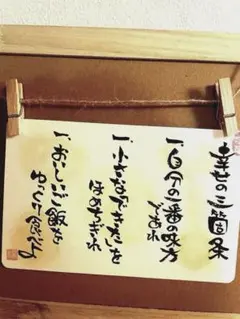 幸せの三箇条
一、自分の一番の味方
であれ
一、小さなできたことを
ほめちぎれ
一、おいしいご飯を